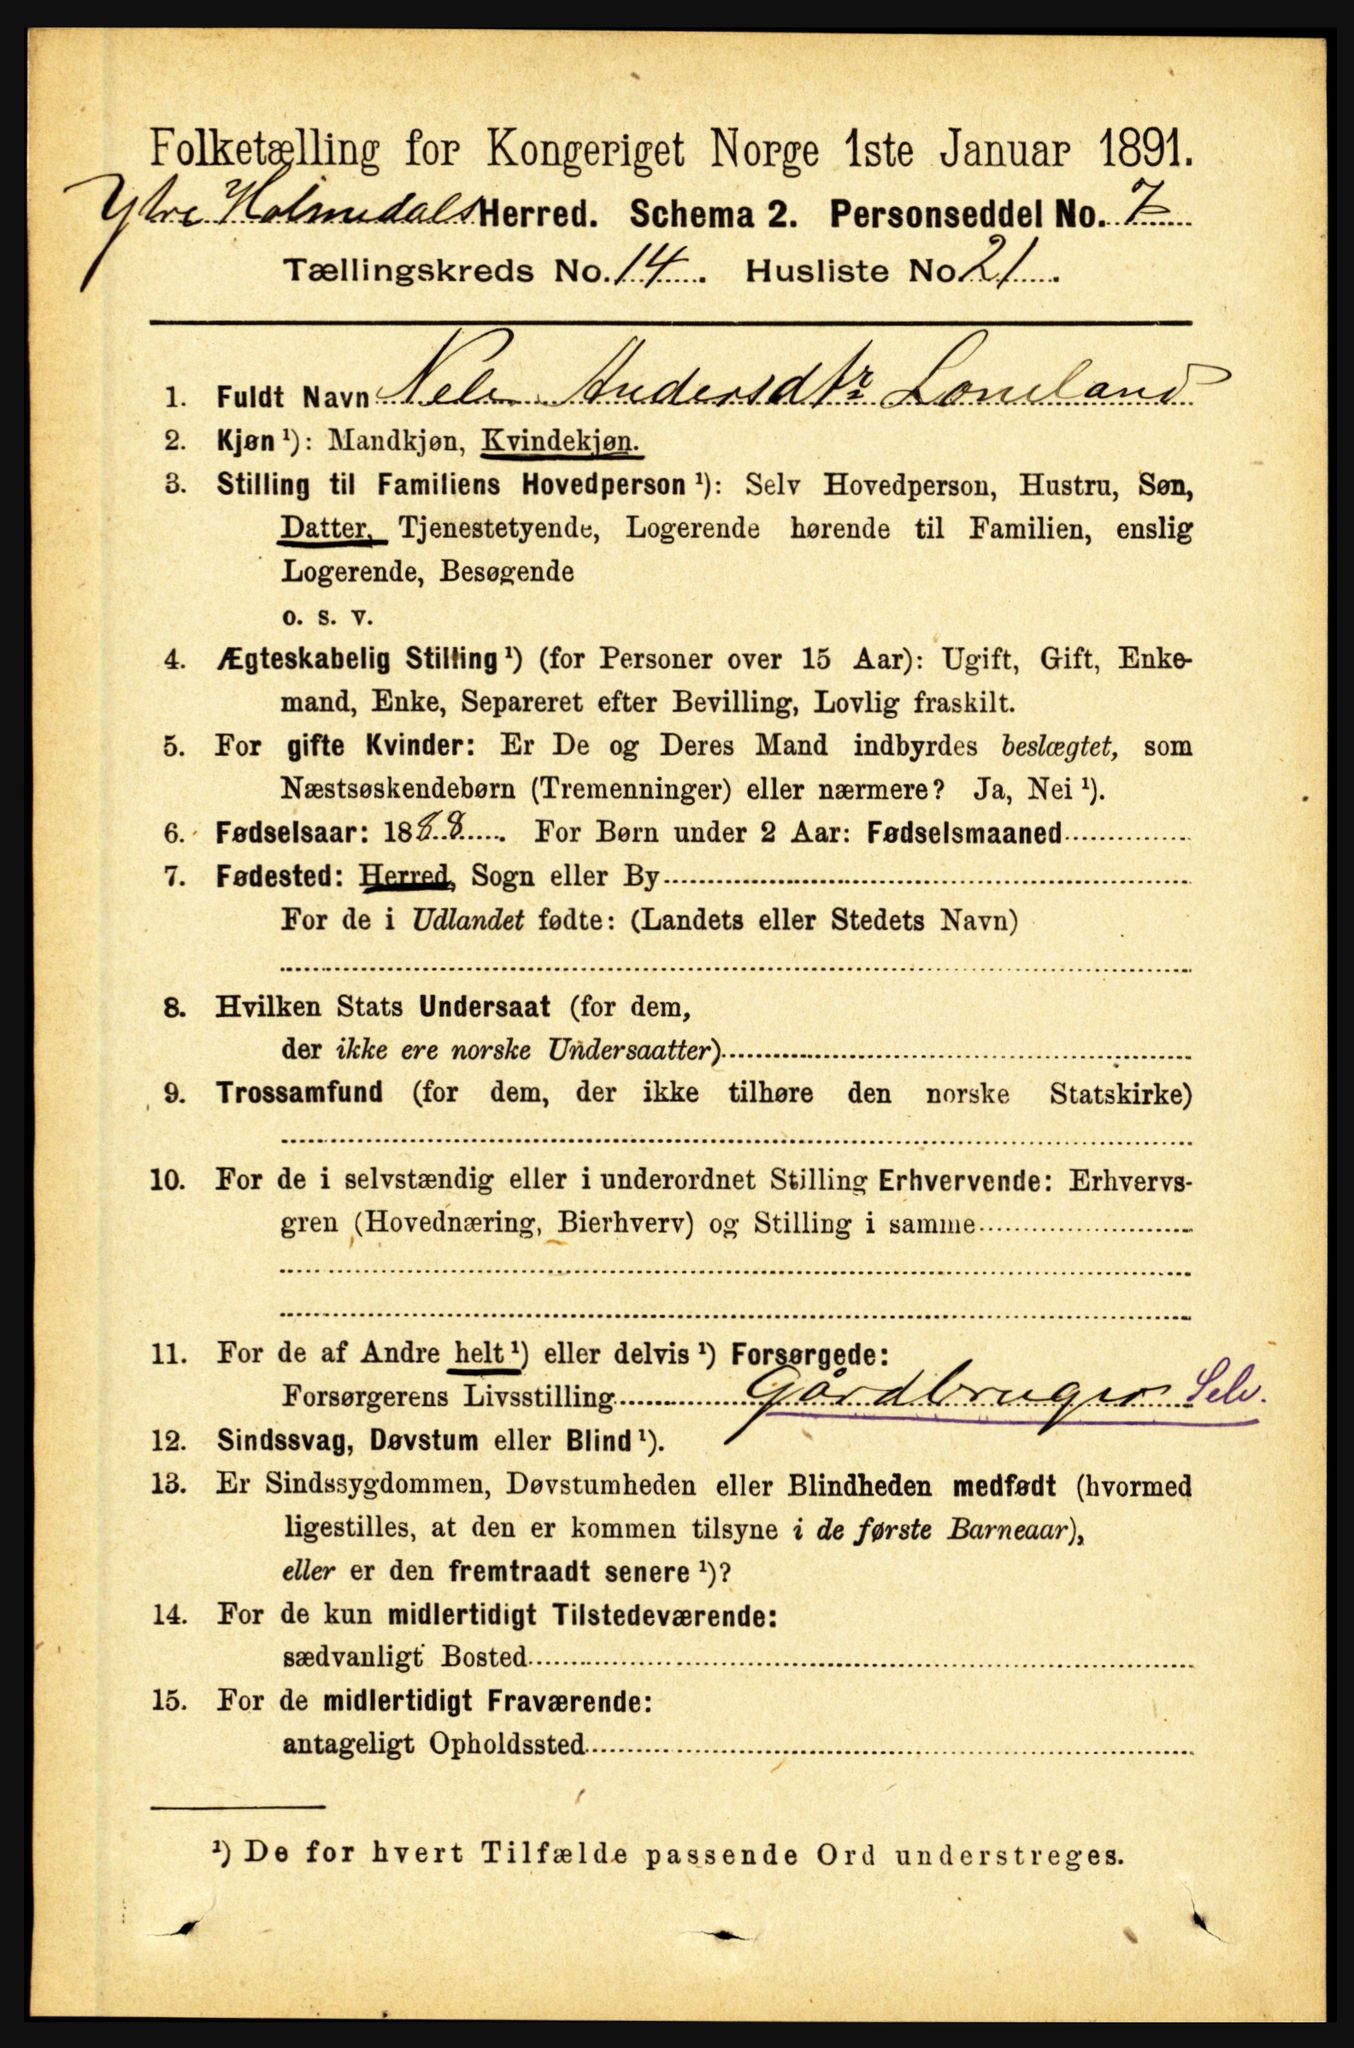 Folketælling for Kongeriget Norge 1ste Januar 1891.
Ytre Holmedals Herred. Schema 2. Personseddel No. 7
Tællingskreds No. 14. Husliste No 21.
1. Fuldt Navn Andersdtr Loneland
2. Kjøn ¹): Mandkjøn, Kvindekjøn.
3. Stilling til Familiens Hovedperson ¹): Selv Hovedperson, Hustru, Søn,
Datter, Tjenestetyende, Logerende hørende til Familien, enslig
Logerende, Besøgende
o. s. v.
4. Ægteskabelig Stilling ¹) (for Personer over 15 Aar): Ugift, Gift, Enke-
mand, Enke, Separeret efter Bevilling, Lovlig fraskilt.
5. For gifte Kvinder: Er De og Deres Mand indbyrdes beslægtet, som
Næstsøskendebørn (Tremenninger) eller nærmere? Ja, Nei ¹).
6. Fødselsaar: 1888. For Børn under 2 Aar: Fødselsmaaned
7. Fødested: Herred, Sogn eller By
For de i Udlandet fødte: (Landets eller Stedets Navn)
8. Hvilken Stats Undersaat (for dem,
der ikke ere norske Undersaatter)
9. Trossamfund (for dem, der ikke tilhøre den norske Statskirke)
10. For de i selvstændig eller i underordnet Stilling Erhvervende: Erhvervs-
gren (Hovednæring, Bierhverv) og Stilling i samme
11. For de af Andre helt ¹) eller delvis ¹) Forsørgede:
Forsørgerens Livsstilling Gårdbruger Selv.
12. Sindssvag, Døvstum eller Blind ¹).
13. Er Sindssygdommen, Døvstumheden eller Blindheden medfødt (hvormed
ligestilles, at den er kommen tilsyne i de første Barneaar),
eller er den fremtraadt senere ¹)?
14. For de kun midlertidigt Tilstedeværende:
sædvanligt Bosted
15. For de midlertidigt Fraværende:
antageligt Opholdssted
¹) De for hvert Tilfælde passende Ord understreges.